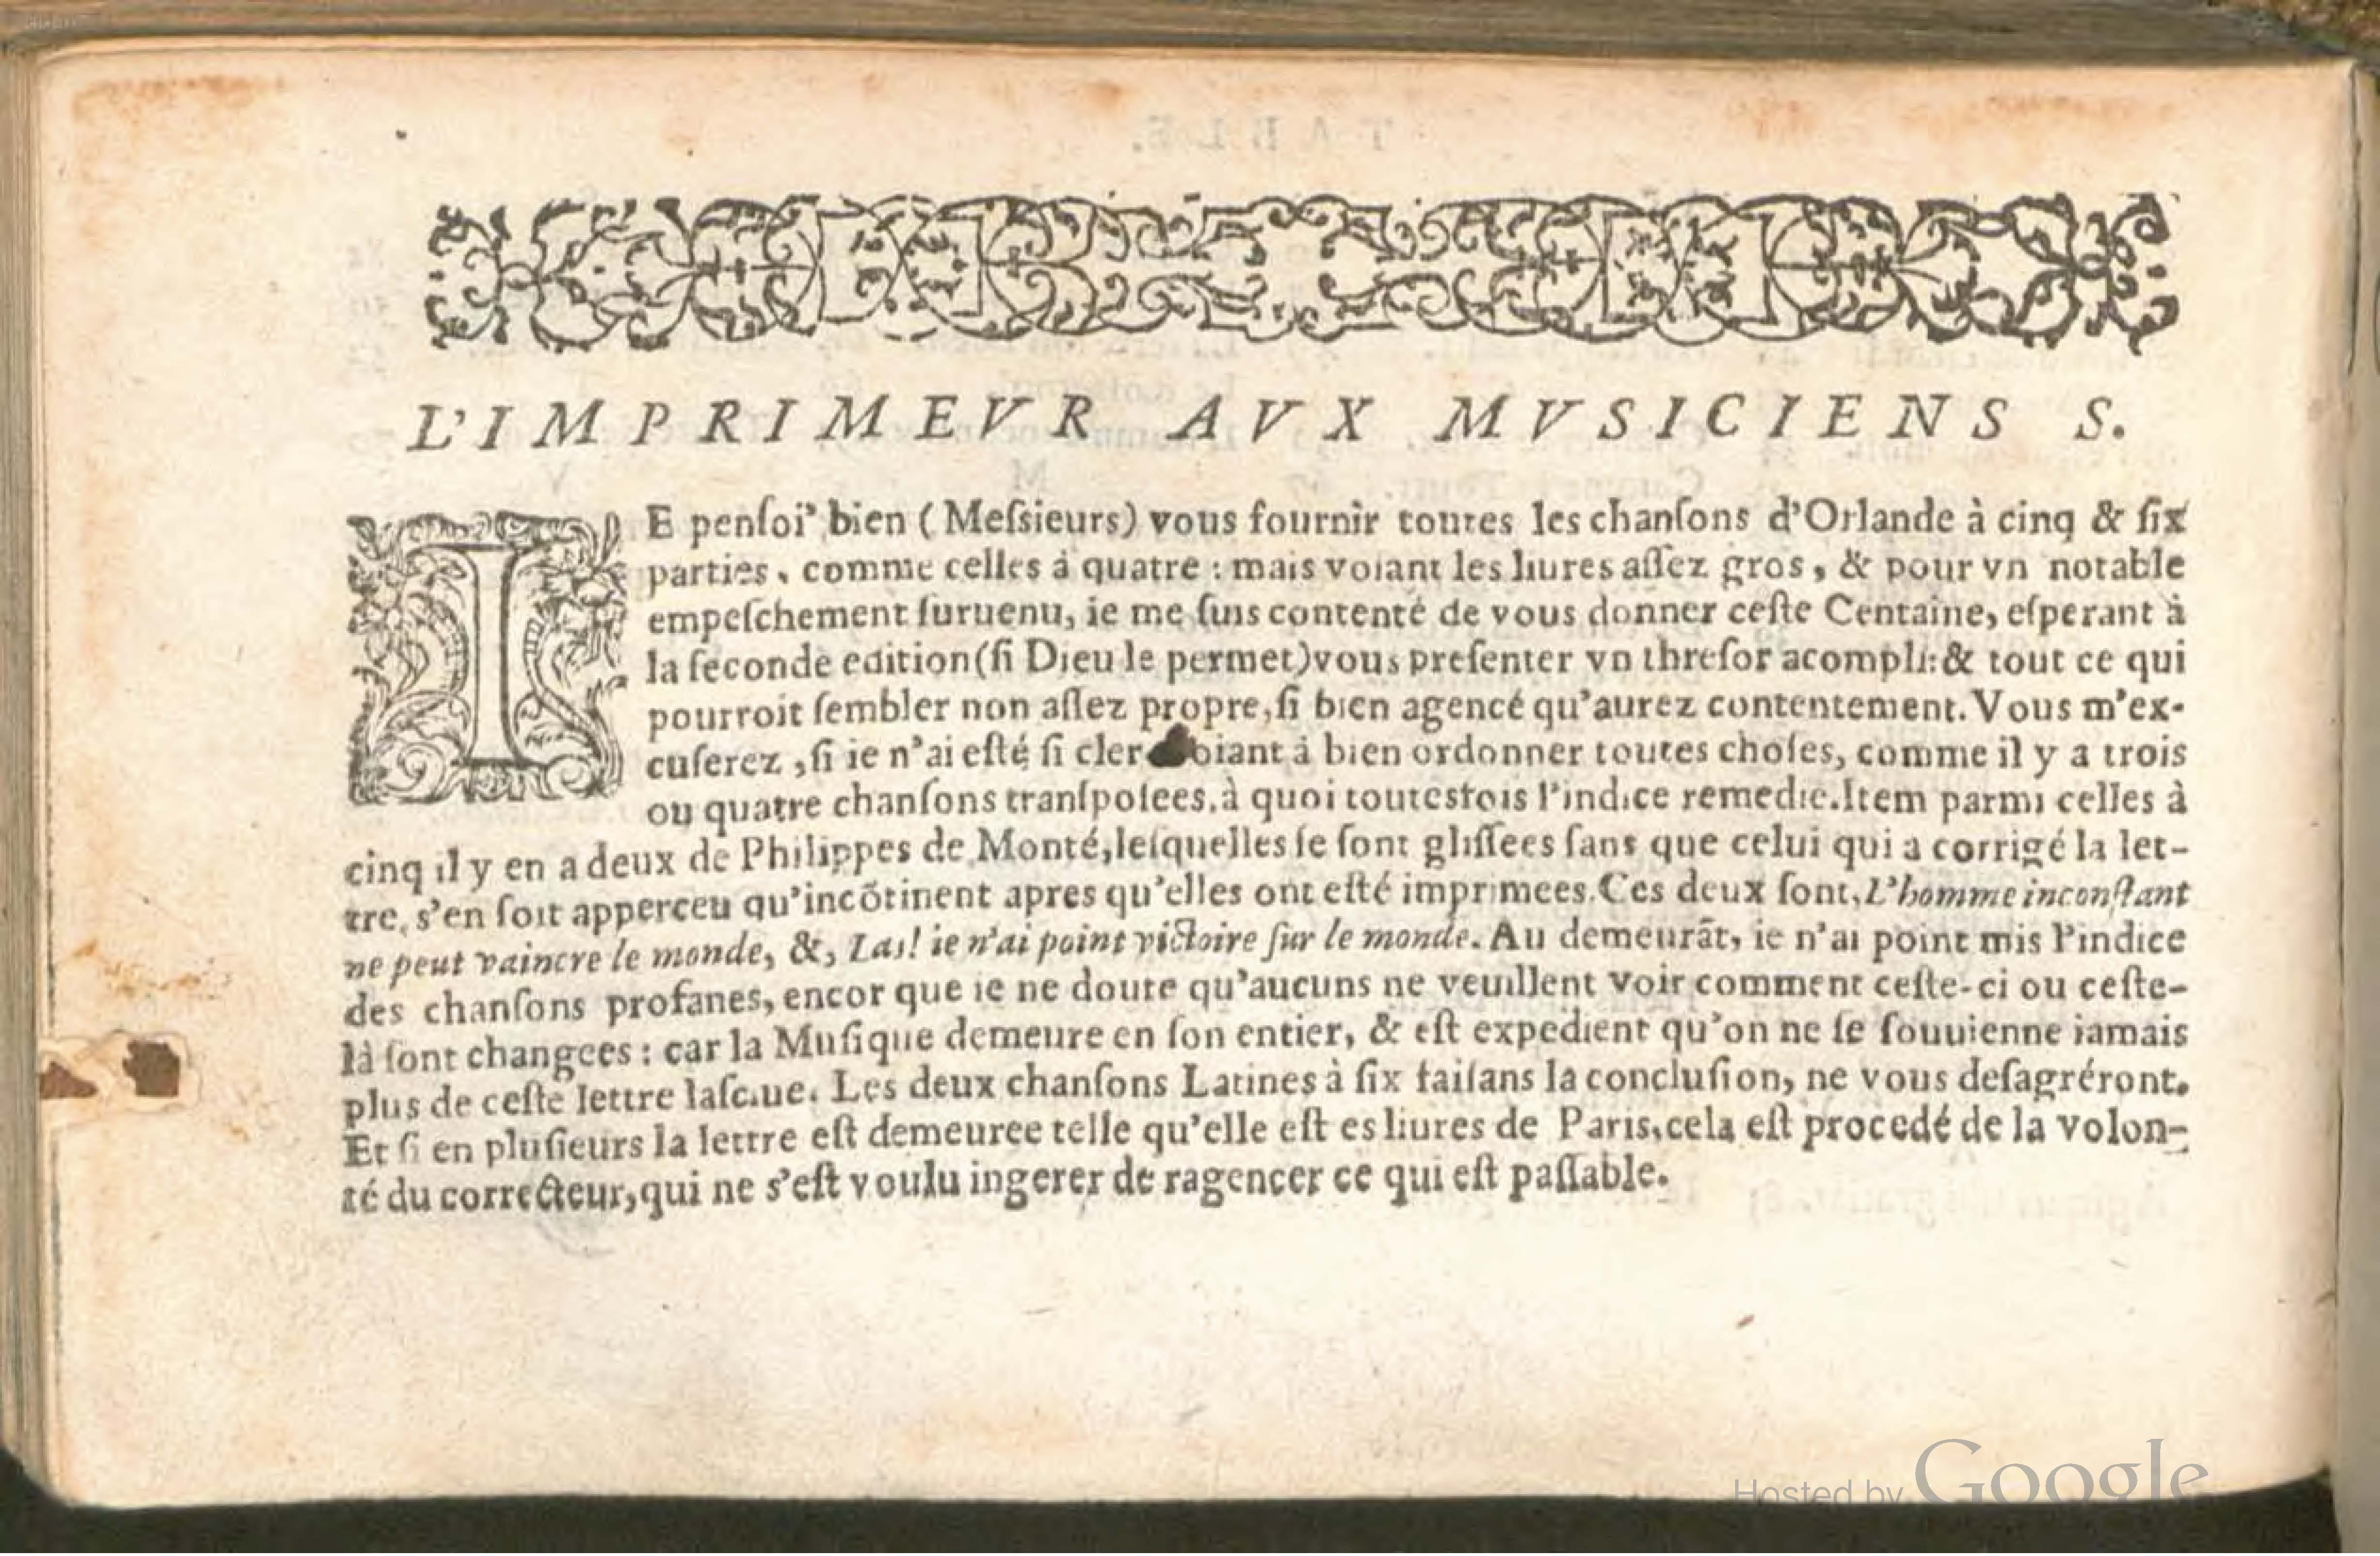 L'IMPRIMEVR AVX MVSICIENS S.
IE penſoi' bien (Meſsieurs) vous fournir toutes les chanſons d'Orlande à cinq & ſix
parties, comme celles à quatre : mais voiant les liures aſſez gros, & pour vn notable
empeſchement ſuruenu, ie me ſuis contenté de vous donner ceſte Centaine, eſperant à
la ſeconde edition (ſi Dieu le permet) vous preſenter vn threſor acompli: & tout ce qui
pourroit ſembler non aſſez propre, ſi bien agencé qu'aurez contentement. Vous m'ex-
cuſerez, ſi ie n'ai eſté ſi cler oiant à bien ordonner toutes choſes, comme il y a trois
ou quatre chanſons tranſpoſees, à quoi toutesfois l'indice remedie. Item parmi celles à
cinq il y en a deux de Philippes de Monté, leſquelles ſe ſont gliſſees ſans que celui qui a corrigé la let-
tre, s'en ſoit apperceu qu'incõtinent apres qu'elles ont eſté imprimees. Ces deux ſont, L'homme inconſtant
ne peut vaincre le monde, &, Las! ie n'ai point victoire ſur le monde. Au demeurãt, ie n'ai point mis l'indice
des chanſons profanes, encor que ie ne doute qu'aucuns ne veuillent voir comment ceſte-ci ou ceſte-
là ſont changees : car la Muſique demeure en ſon entier, & eſt expedient qu'on ne ſe ſouuienne iamais
plus de ceſte lettre laſciue. Les deux chanſons Latines à ſix faiſans la concluſion, ne vous deſagréront.
Et ſi en pluſieurs la lettre eſt demeuree telle qu'elle eſt es liures de Paris, cela eſt procedé de la volon-
té du correcteur, qui ne s'eſt voulu ingerer de ragencer ce qui eſt paſſable.
Hosted by Google